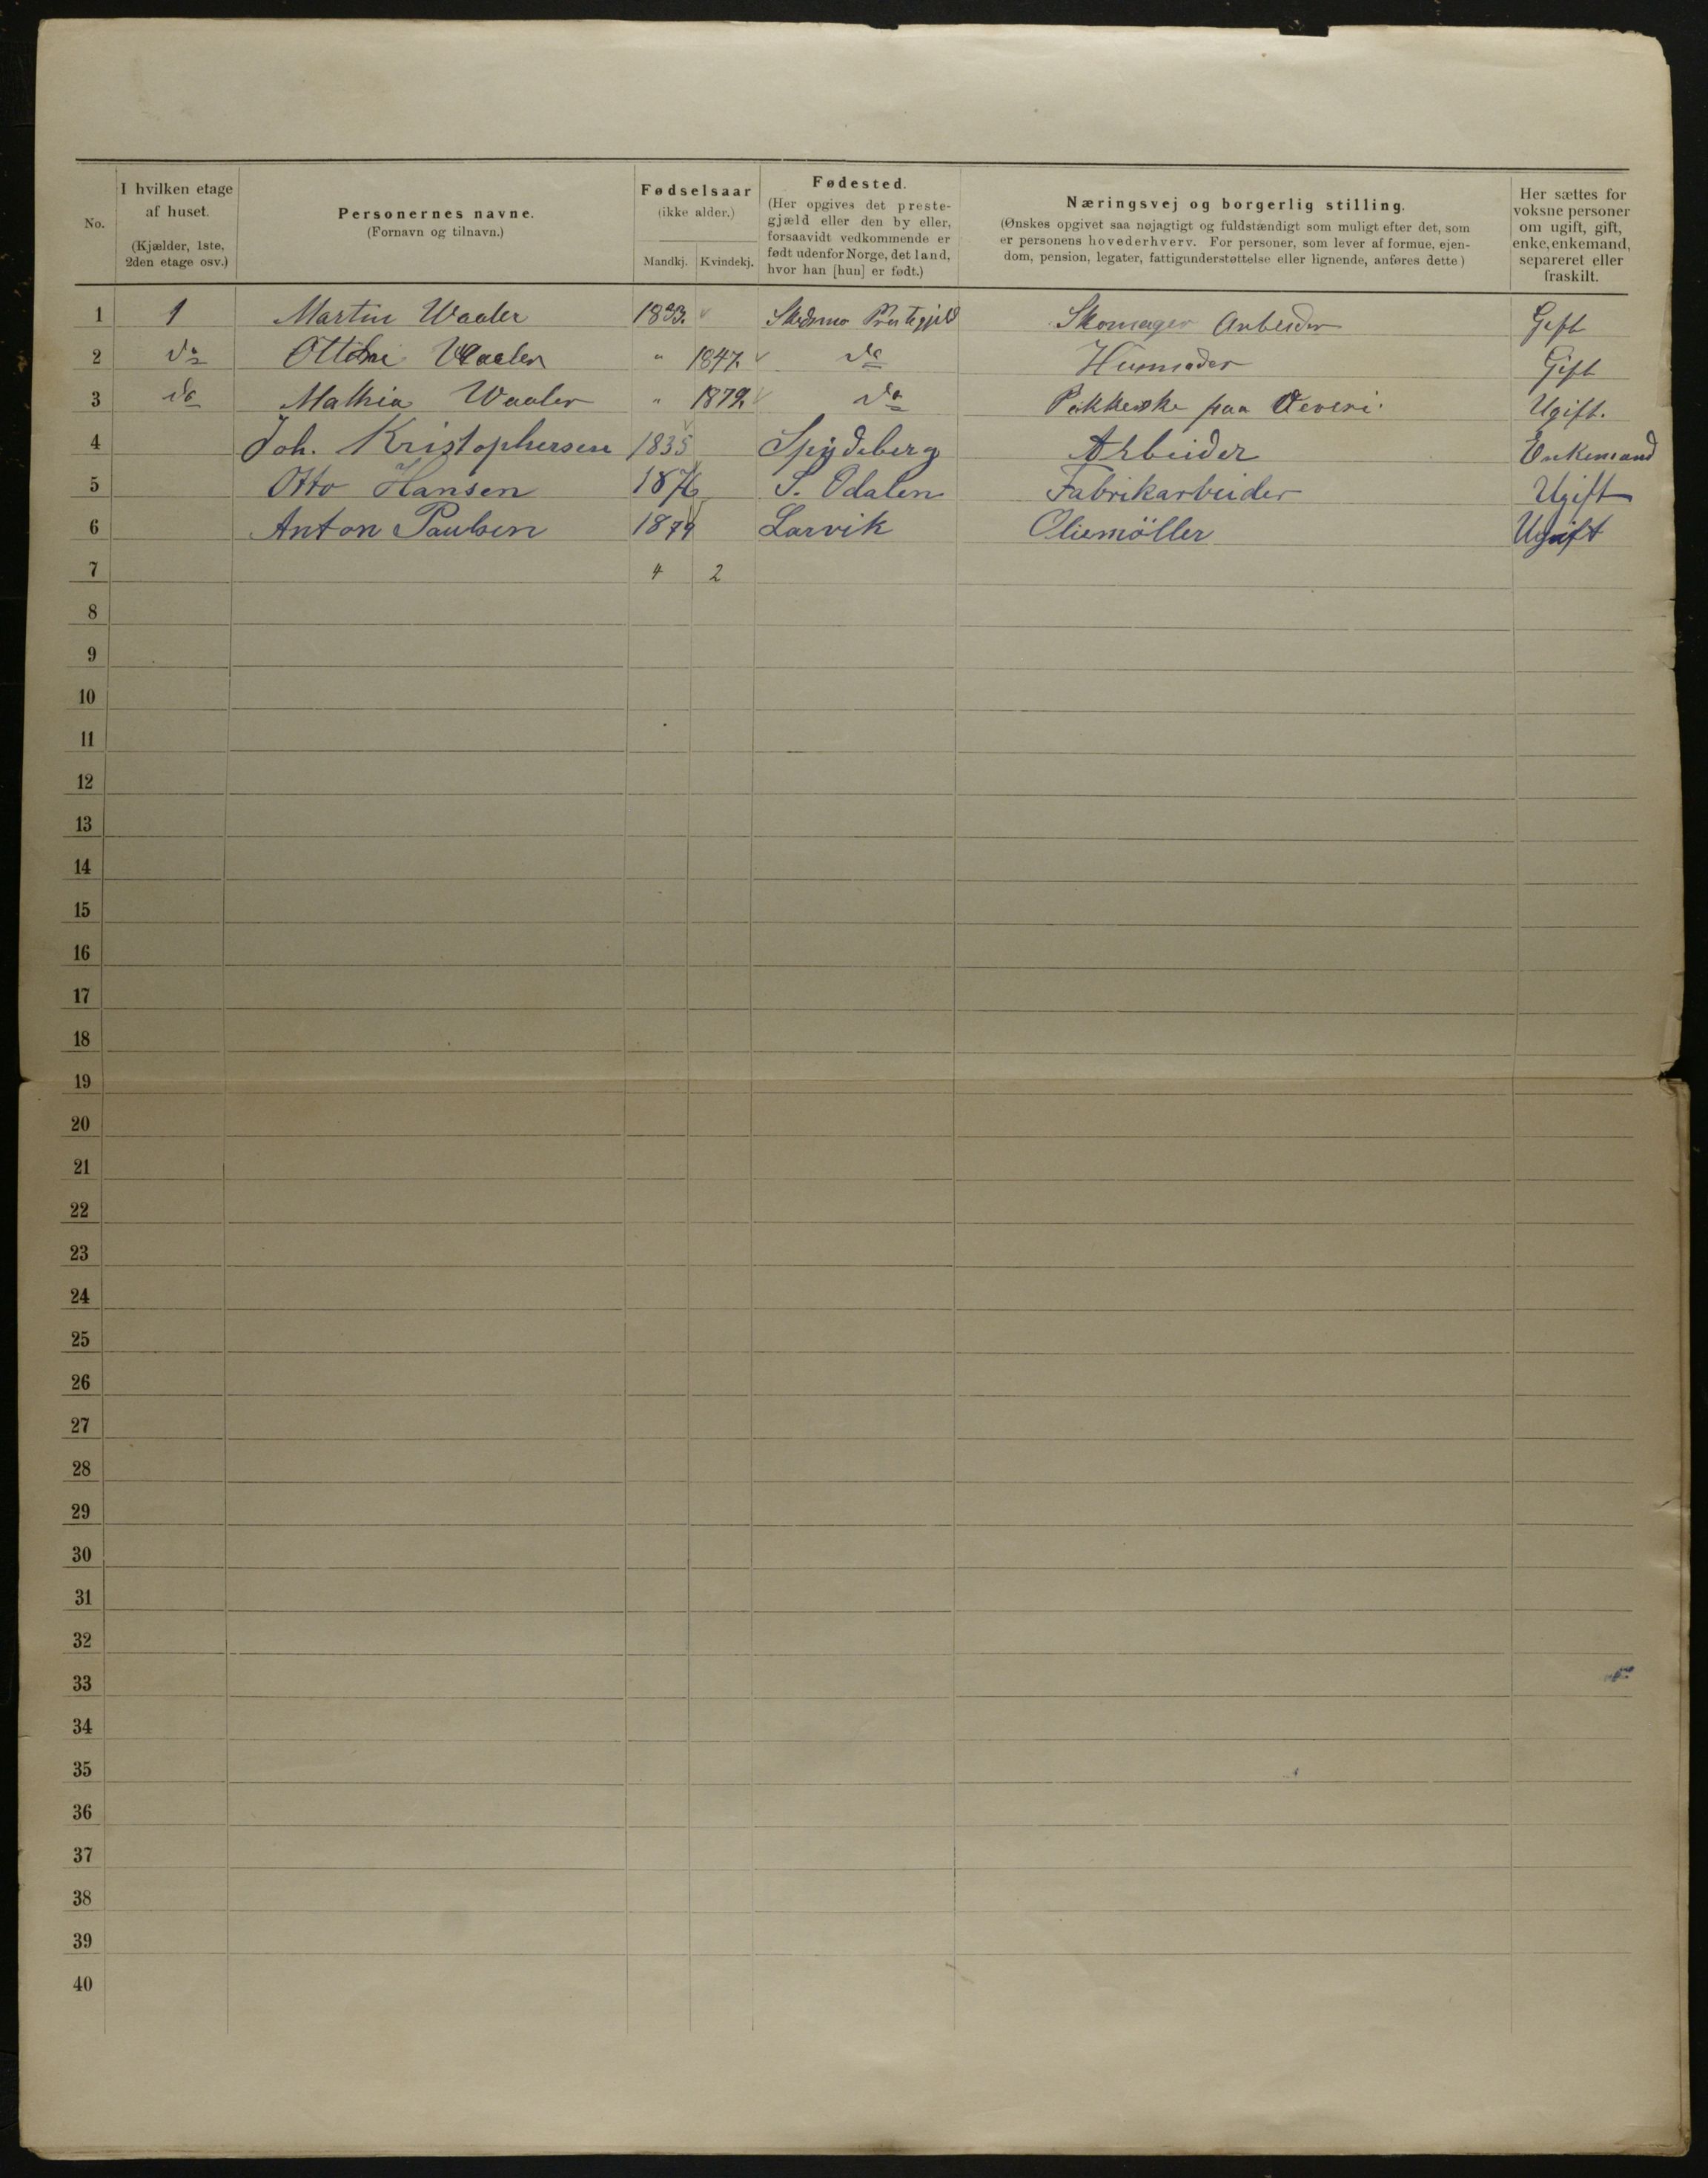 No.
I hvilken etage
af huset.
(Kjælder, 1ste,
2den etage osv.)
Personernes navne.
(Fornavn og tilnavn.)
Fødselsaar
(ikke alder.)
Mandkj. Kvindekj.
Fødested.
(Her opgives det preste-
gjæld eller den by eller,
forsaavidt vedkommende er
født udenfor Norge, det land,
hvor han [hun] er født.)
Næringsvej og borgerlig stilling.
(Ønskes opgivet saa nøjagtigt og fuldstændigt som muligt efter det, som
er personens hovederhverv. For personer, som lever af formue, ejen-
dom, pension, legater, fattigunderstøttelse eller lignende, anføres dette)
Her sættes for
voksne personer
om ugift, gift,
enke, enkemand,
separeret eller
fraskilt.
1 1 Martin Waaler 1833. Skomager Arbeider Gift
2 do Waaler " 1847. do Husmoder Gift
3 do Mathia Waaler " 1879. do paa Veveri. Ugift.
4 Joh. Kristophersen 1835 Spydeberg Arbeider Enkemand
5 Otto Hansen 1876 S. Odalen Fabrikarbeider Ugift
6 Anton Paulsen 1879 Larvik Oliemöller Ugift
7 4 2
8
9
10
11
12
13
14
15
16
17
18
19
20
21
22
23
24
25
26
27
28
29
30
31
32
33
34
35
36
37
38
39
40